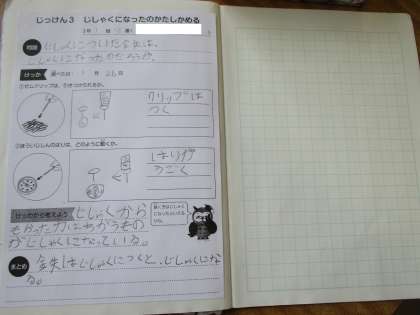 じっけん3 じしゃくになったのかたしかめる
問題
じしゃくについた金ぞくは、
じしゃくになったのだろうか。
けっか
月 26日
①ゼムクリップは、引きつけられるか。
クリップは
つく
②ほういじしんのはりは、どのように動くか。
はりが
うごく
けっかから考えよう
じしゃくから
もらった力はぬがうもの
がじしゃくになっている。
まとめ
鉄はじしゃくにつくと、じしゃくにな
る。